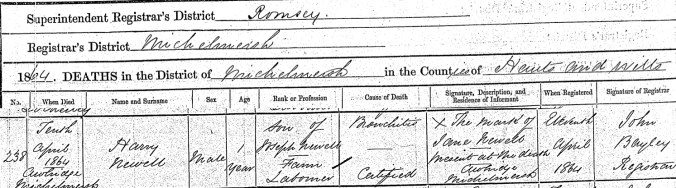 Superintendent Registrar's District Romsey
Registrar's District Michelmersh
1864. DEATHS in the District of Michelmersh in the Counties of Hants and Wilts
No. When Died Name and Surname Sex Age Rank or Profession Cause of Death Signature, Description, and Residence of Informant When Registered Signature of Registrar
238
Tenth
April
1864
Awbridge
Michelmersh
Harry
Newell
Male
1
Year
Son of
Joseph Newell
Farm
Labourer
Bronchitis
Certified
X The mark of
Jane Newell
Present at the death
Awbridge
Michelmersh
Eleventh
April
1864
John
Bayley
Registrar